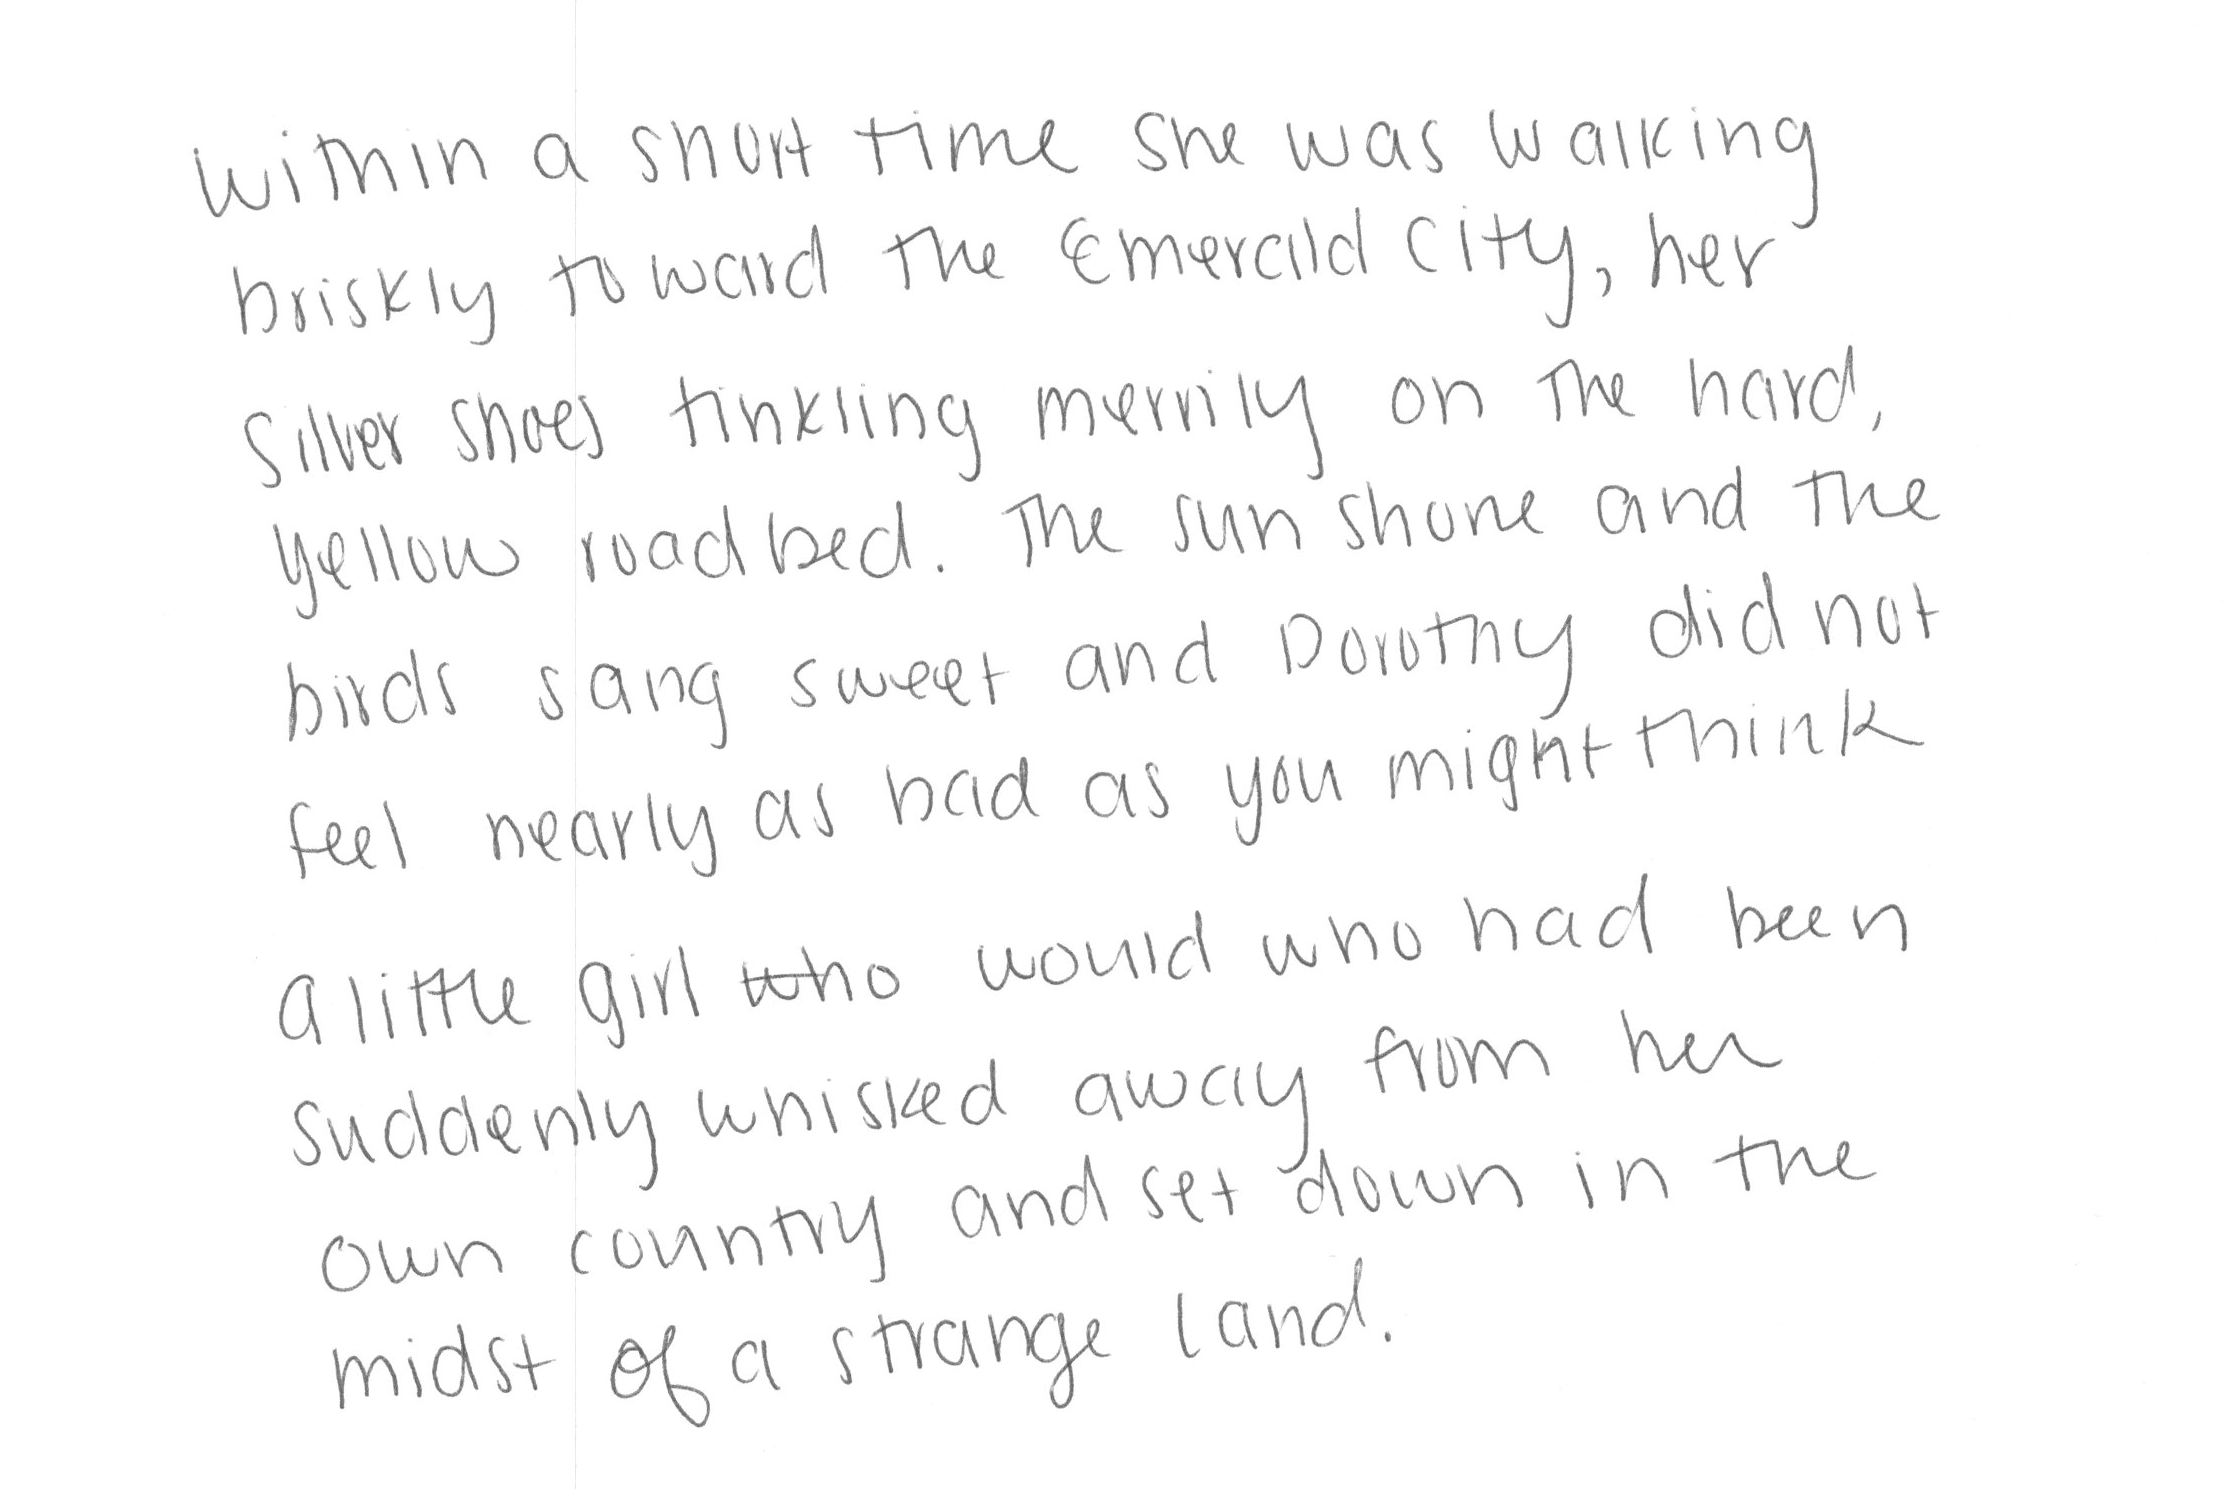 Within a short time she was walking
briskly toward the Emerald City, her
Silver shoes tinkling merrily on the hard,
yellow roadbed. The sun shone and the
birds sang sweet and Dorothy did not
feel nearly as bad as you might think
a little girl who would who had been
suddenly whisked away from her
own country and set down in the
midst of a strange land.